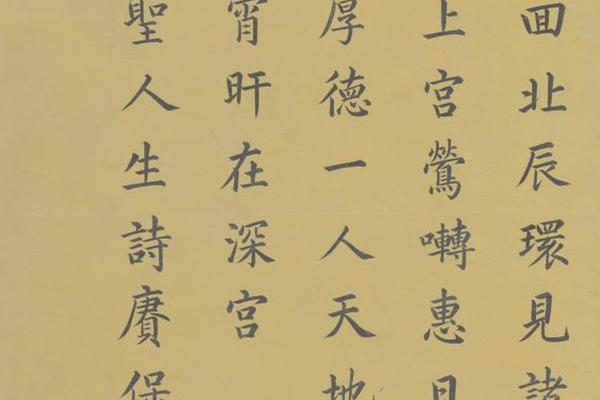 面北辰環見諸
上宮鶯囀惠
厚德一人天地
宵旰在深宮
聖人生詩賡保